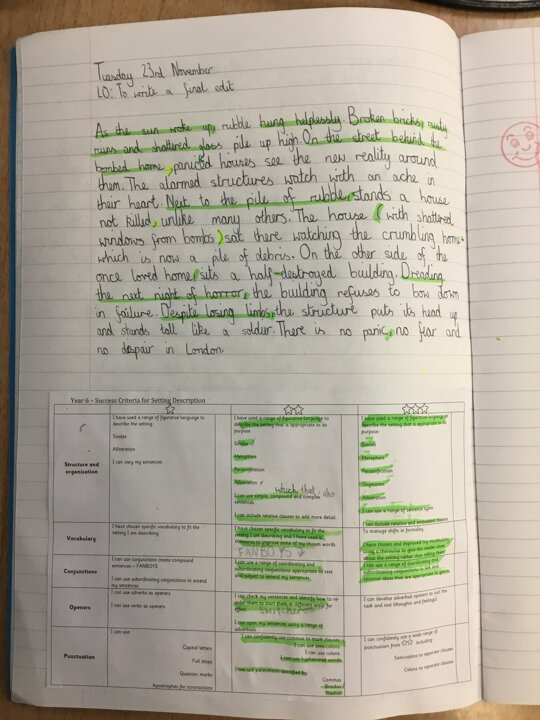 Tuesday 23rd November
LO: To write a final edit
As the sun woke up, rubble hung helplessly. Broken bricks, rusty
ruins and shattered glass pile up high. On the street behind the
bombed home, panicked houses see the new reality around
them. The alarmed structures watch with an ache in
their heart. Next to the pile of rubble, stands a house
not killed, unlike many others. The house (with shattered
windows from bombs) sat there watching the crumbling home
which is now a pile of debris. On the other side of the
once loved home, sits a half-destroyed building. Dreading
the next night of horror, the building refuses to bow down
in failure. Despite losing limbs, the structure puts its head up
and stands tall like a solder. There is no panic, no fear and
no despair in London.
Year 6 – Success Criteria for Setting Description
Structure and organisation
I have used a range of figurative language to describe the setting
Similes
Alliteration
I can vary my sentences
I have used a range of figurative language to describe the setting that is appropriate to its purpose
Similes
Metaphors
Personification
Alliteration
which that who
I can use simple, compound and complex sentences
I can include relative clauses to add more detail
I have used a range of figurative language to describe the setting that is appropriate to its purpose
Similes
Metaphors
Personification
Alliteration
I can use a range of sentence types
I can include relative and embedded clauses
To manage shifts in formality
Vocabulary
I have chosen specific vocabulary to fit the setting I am describing
I have chosen specific vocabulary to fit the setting I am describing and I have used a
to improve some of my chosen words
FANBOYS
I have chosen and improved my vocabulary using a thesaurus to give the reader
about the setting rather than telling them
Conjunctions
I can use conjunctions create compound sentences – FANBOYS
I can use subordinating conjunctions to extend my sentences
I can use a range of coordinating and subordinating conjunctions appropriate to text and subject to extend my sentences
I can use a range of coordinating and subordinating conjunctions to
contrast ideas that are appropriate to
Openers
I can use adverbs as openers
I can use verbs as openers
I can check my sentences and identify how to re-order them to start them in different ways for effect
I can open my sentences using a range of adverbials
I can develop adverbial openers to suit the task and text (thoughts and feelings)
Punctuation
I can use
Capital letters
Full stops
Question marks
Apostrophes for contractions
I can confidently use commas to mark clauses
I can use semi-colons
I can use colons
I can use hyphenated words
I can use parenthesis identified by
Commas
Brackets
Dashes
I can confidently use a wide range of punctuation from ☆☆ including
Semi-colons to separate clauses
Colons to separate clauses